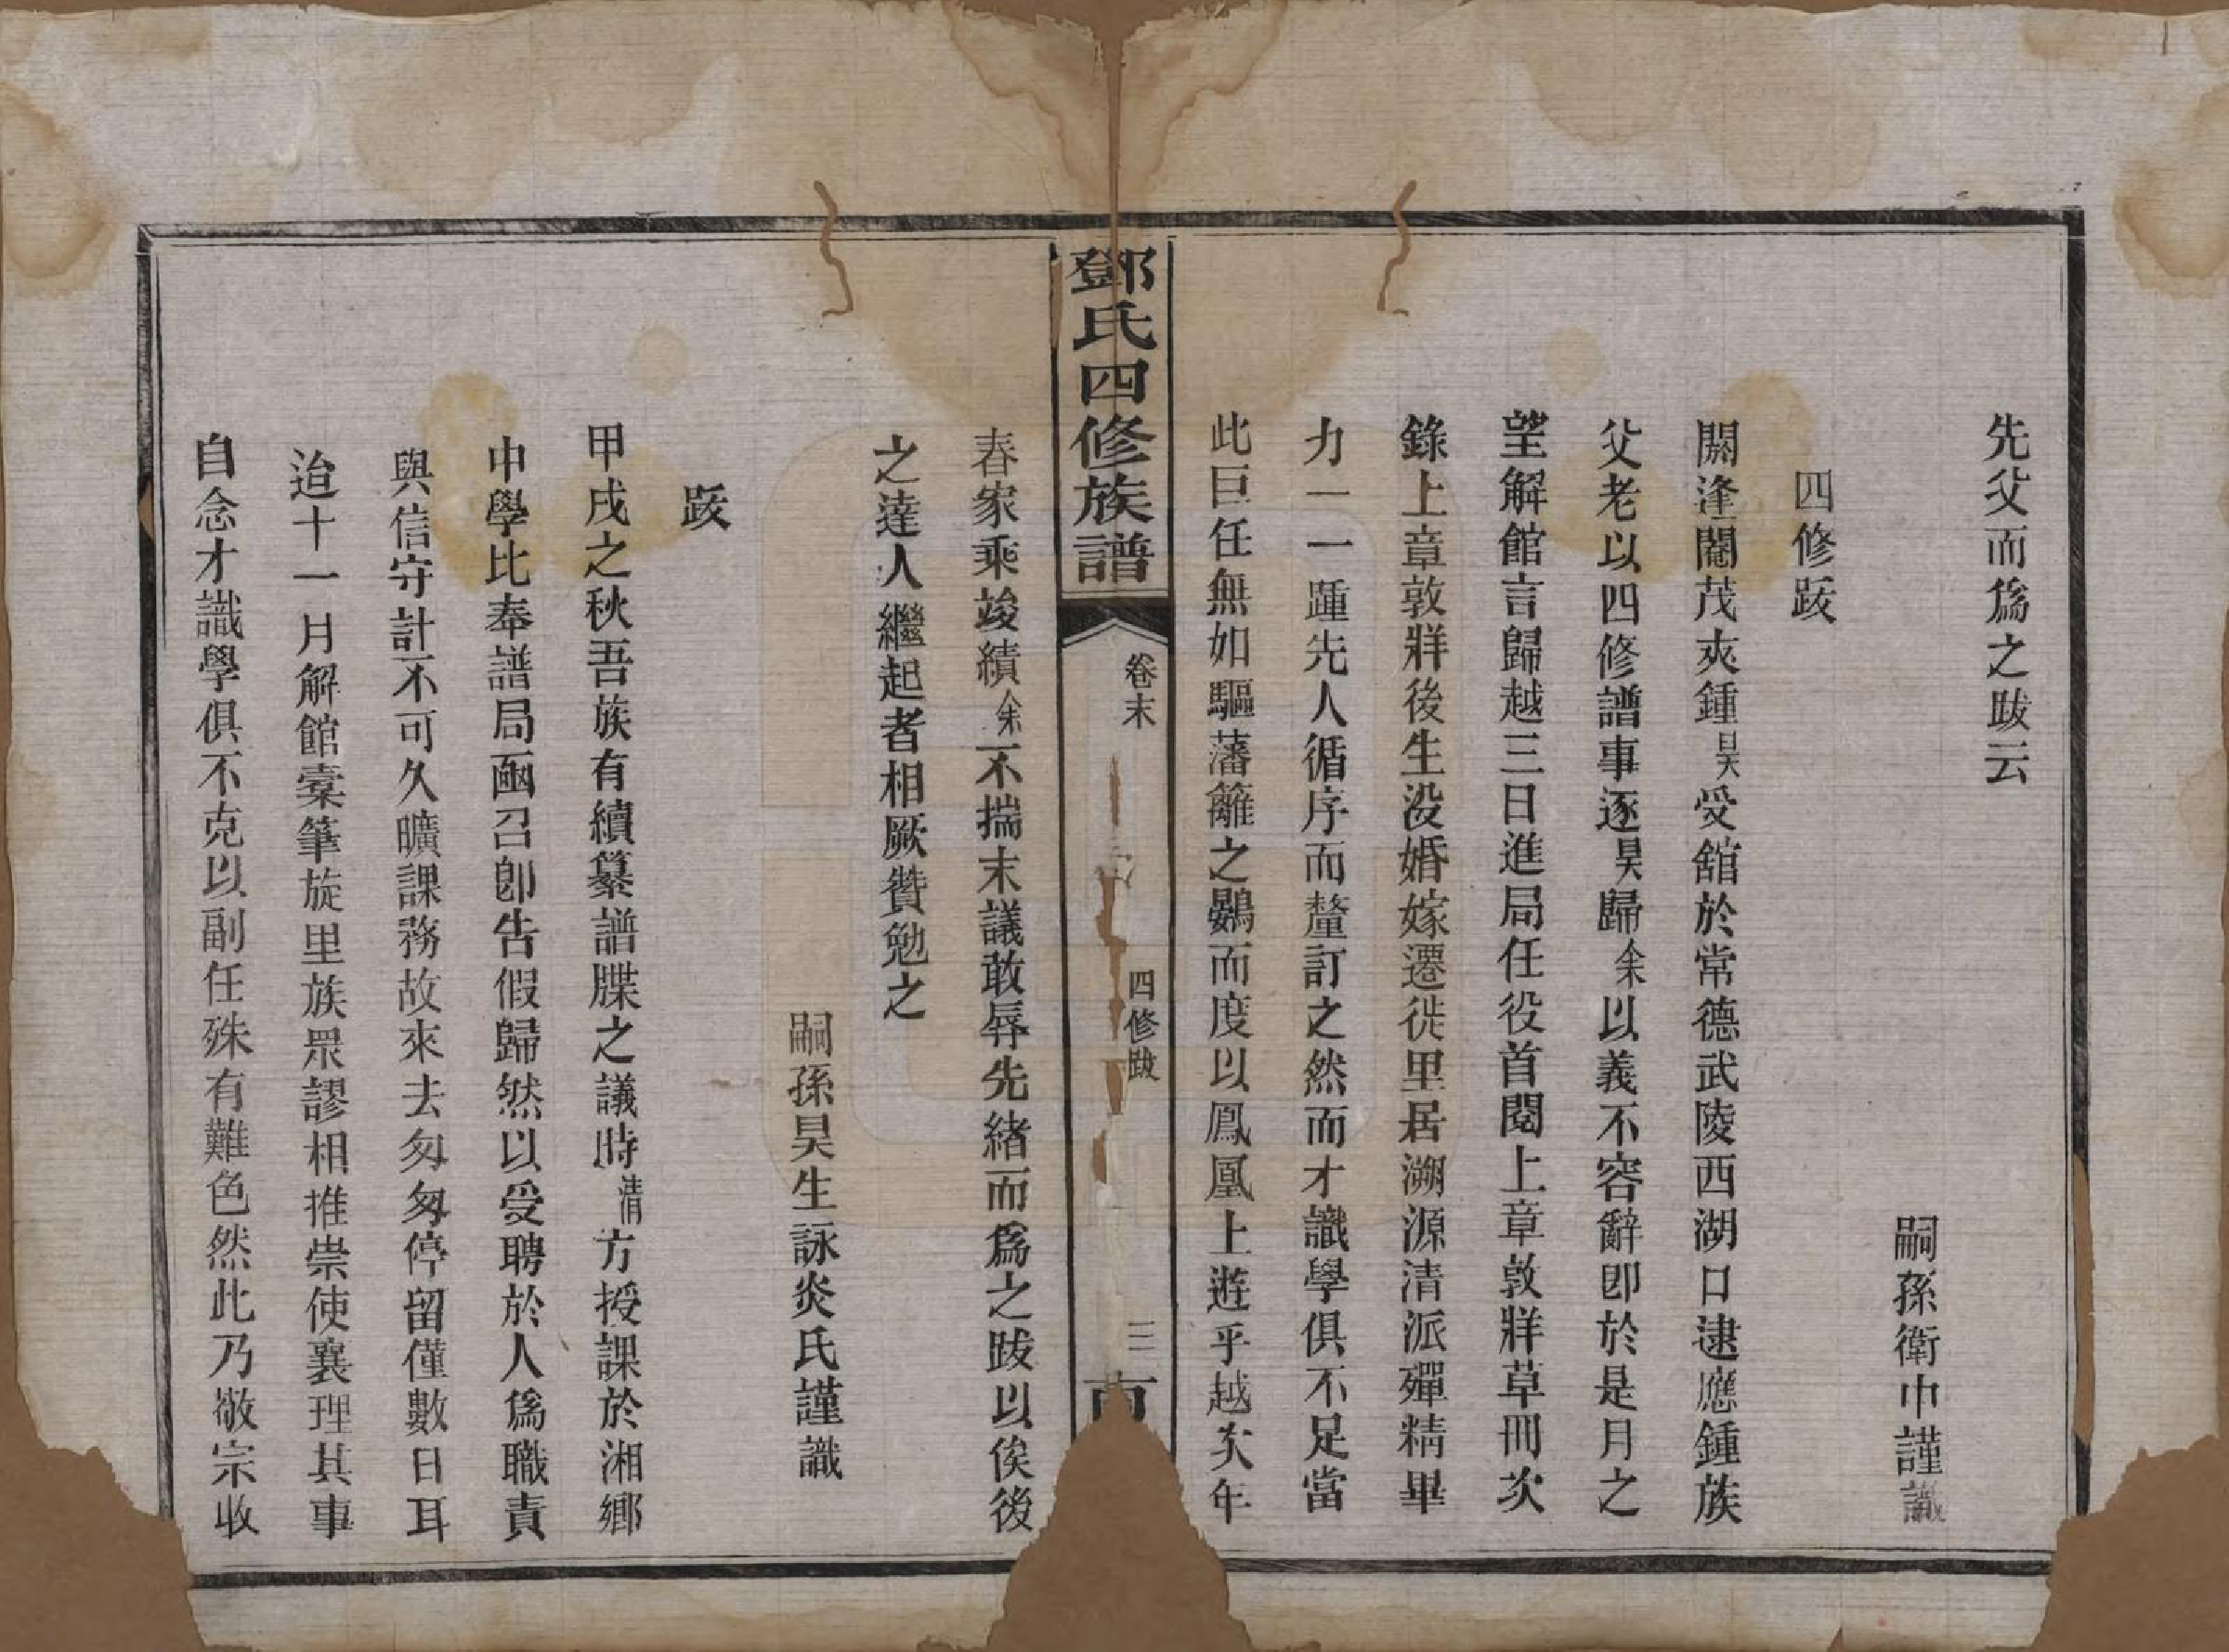 先父而爲之跋云
嗣孫衛巾謹識
四修跋
閼逢閹茂夾鍾昊受舘於常德武陵西湖口逮應鍾族
父老以四修譜事逐昊歸余以義不容辭卽於是月之
望解館言歸越三日進局任役首閱上章敦牂草冊次
錄上章敦牂後生没婚嫁遷徙里居溯源清派殫精畢
力一一踵先人循序而釐訂之然而才識學俱不足當
此巨任無如驅藩籬之鷃而度以鳳凰上遊乎越次年
鄧氏四修族譜
卷末
四修跋
三
春家乘竣績余不揣末議敢辱先緒而爲之跋以俟後
之達人繼起者相厥贊勉之
嗣孫昊生詠炎氏謹識
跋
甲戌之秋吾族有續纂譜牒之議時清方授課於湘鄉
中學比奉譜局函召卽告假歸然以受聘於人爲職責
與信守計不可久曠課務故來去匆匆停留僅數日耳
迨十一月解館橐筆旋里族眾謬相推崇使襄理其事
自念才識學俱不克以副任殊有難色然此乃敬宗收